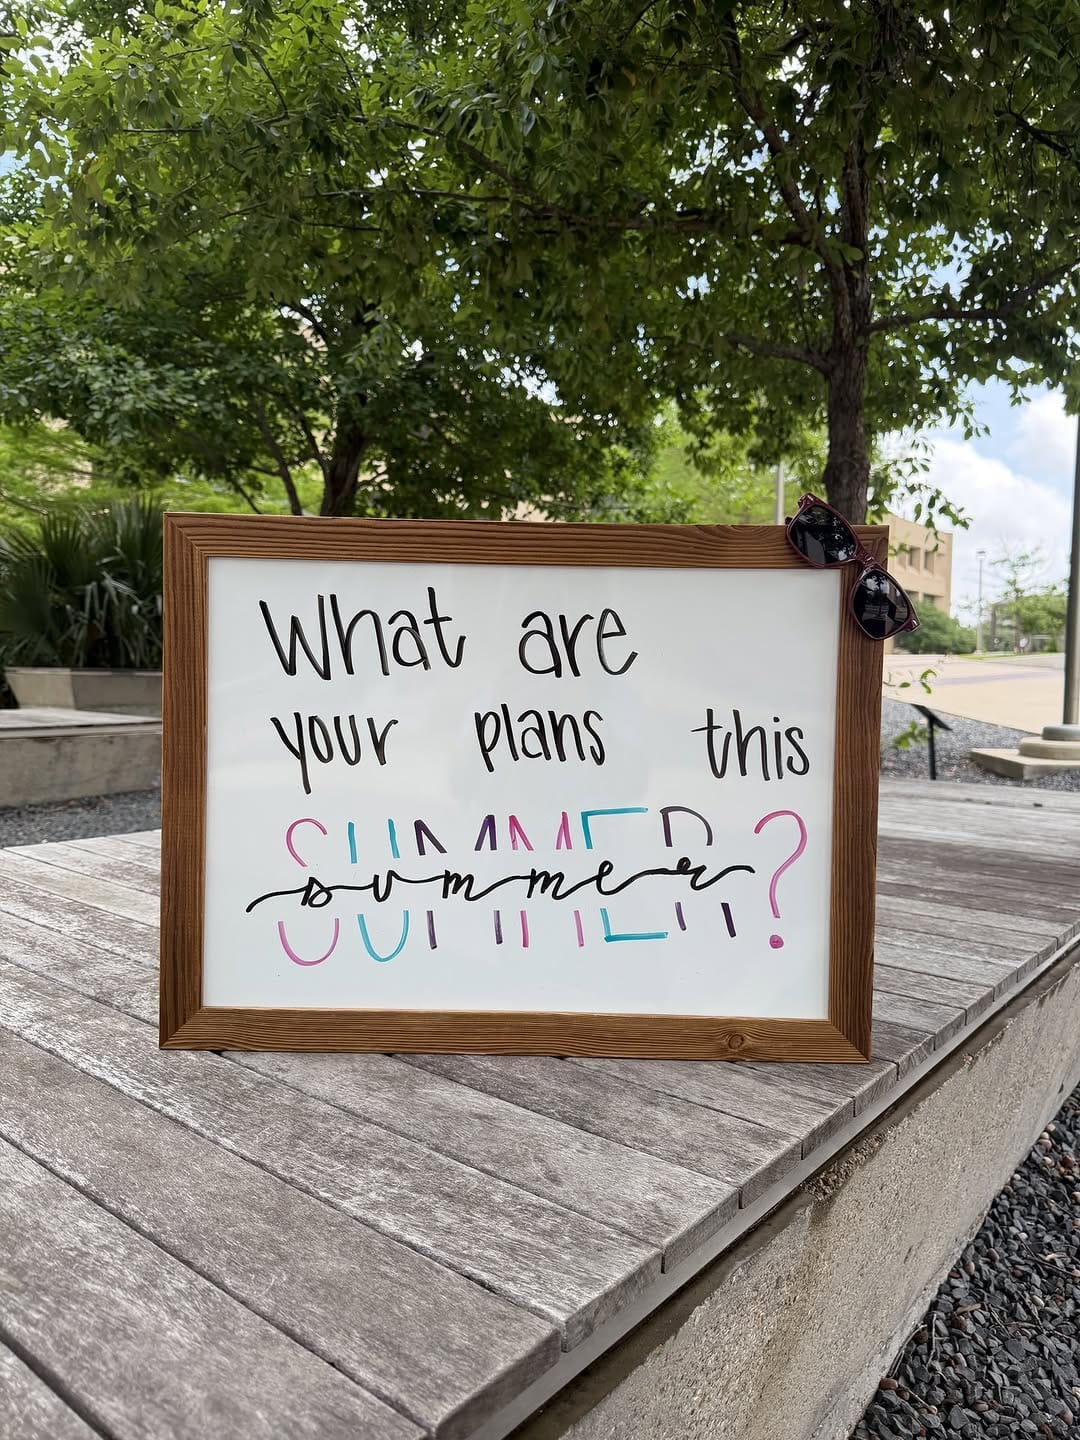 What are
your plans this
SUMMER?
summer